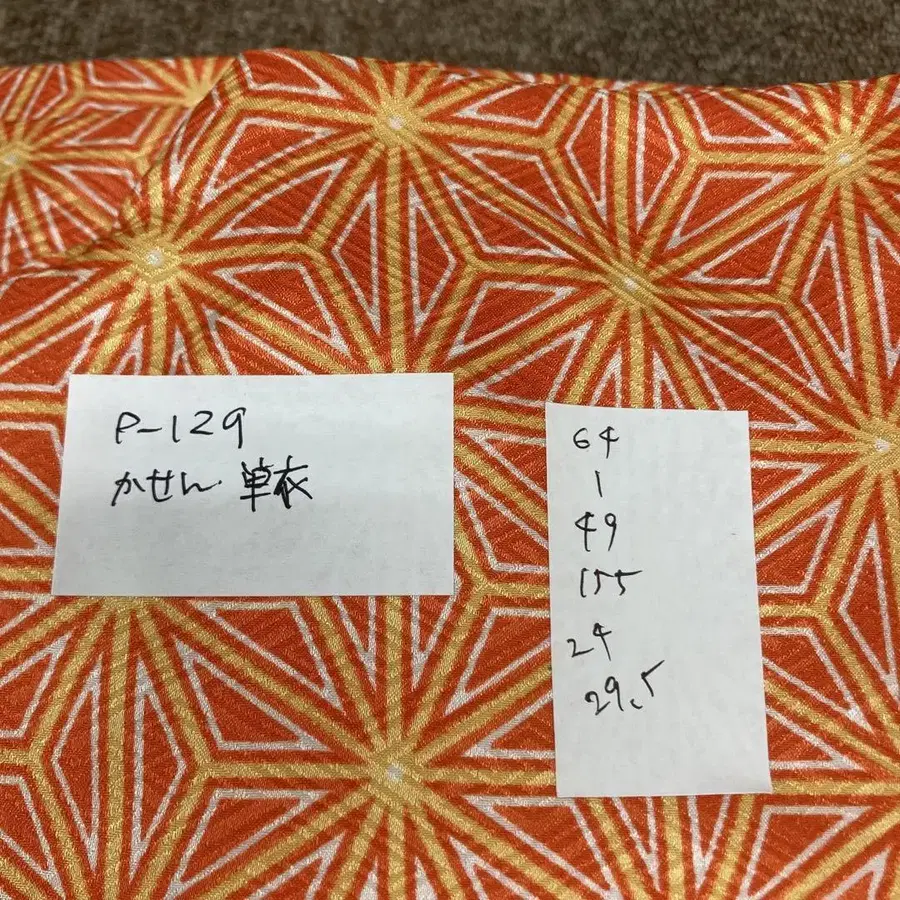 P-129
かせん 単衣
64
1
49
155
24
29.5